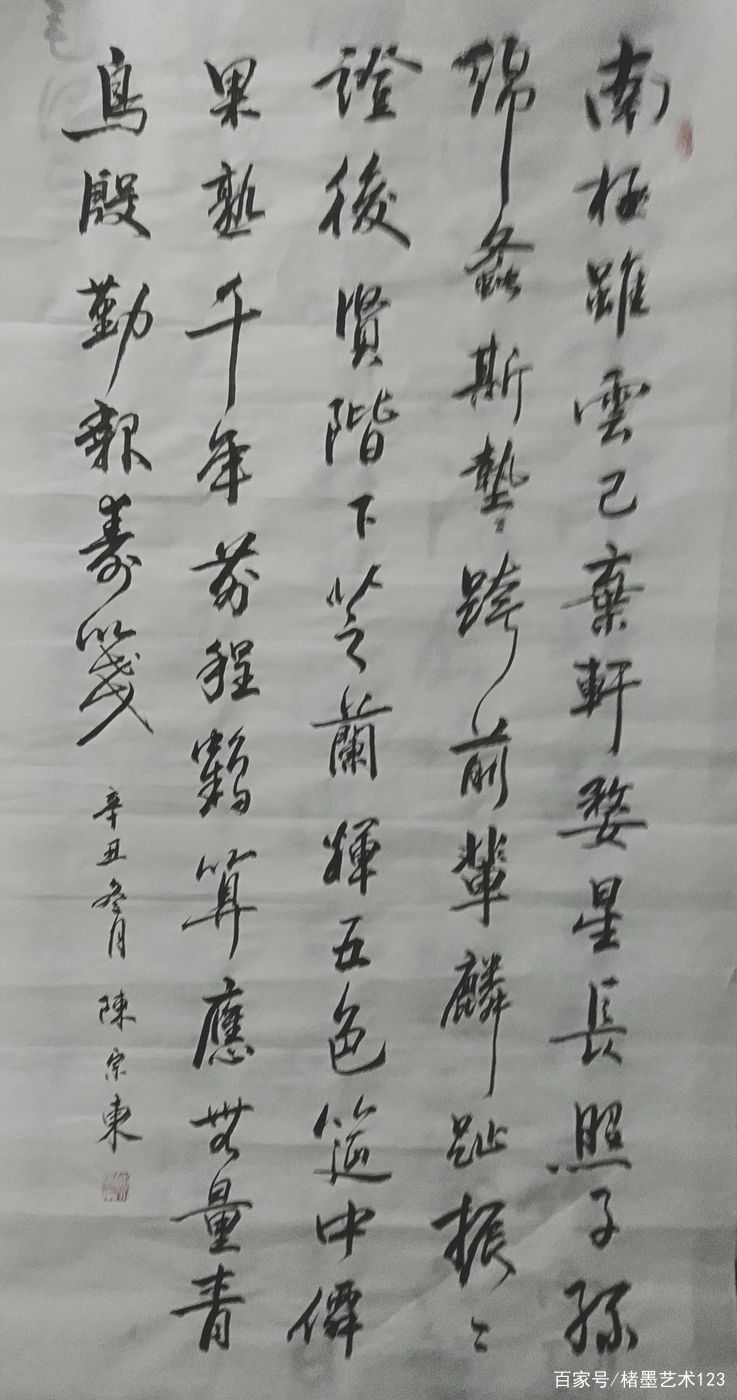 南極雖雲已棄軒婺星長照子孫
綿螽斯蟄〻跨前輩麟趾振〻
證後賢階下芝蘭輝五色筵中僊
果熟千年蓂程鶴算應無量青
鳥殷勤報壽箋
辛丑冬月 陳宗東
百家号/楮墨艺术123